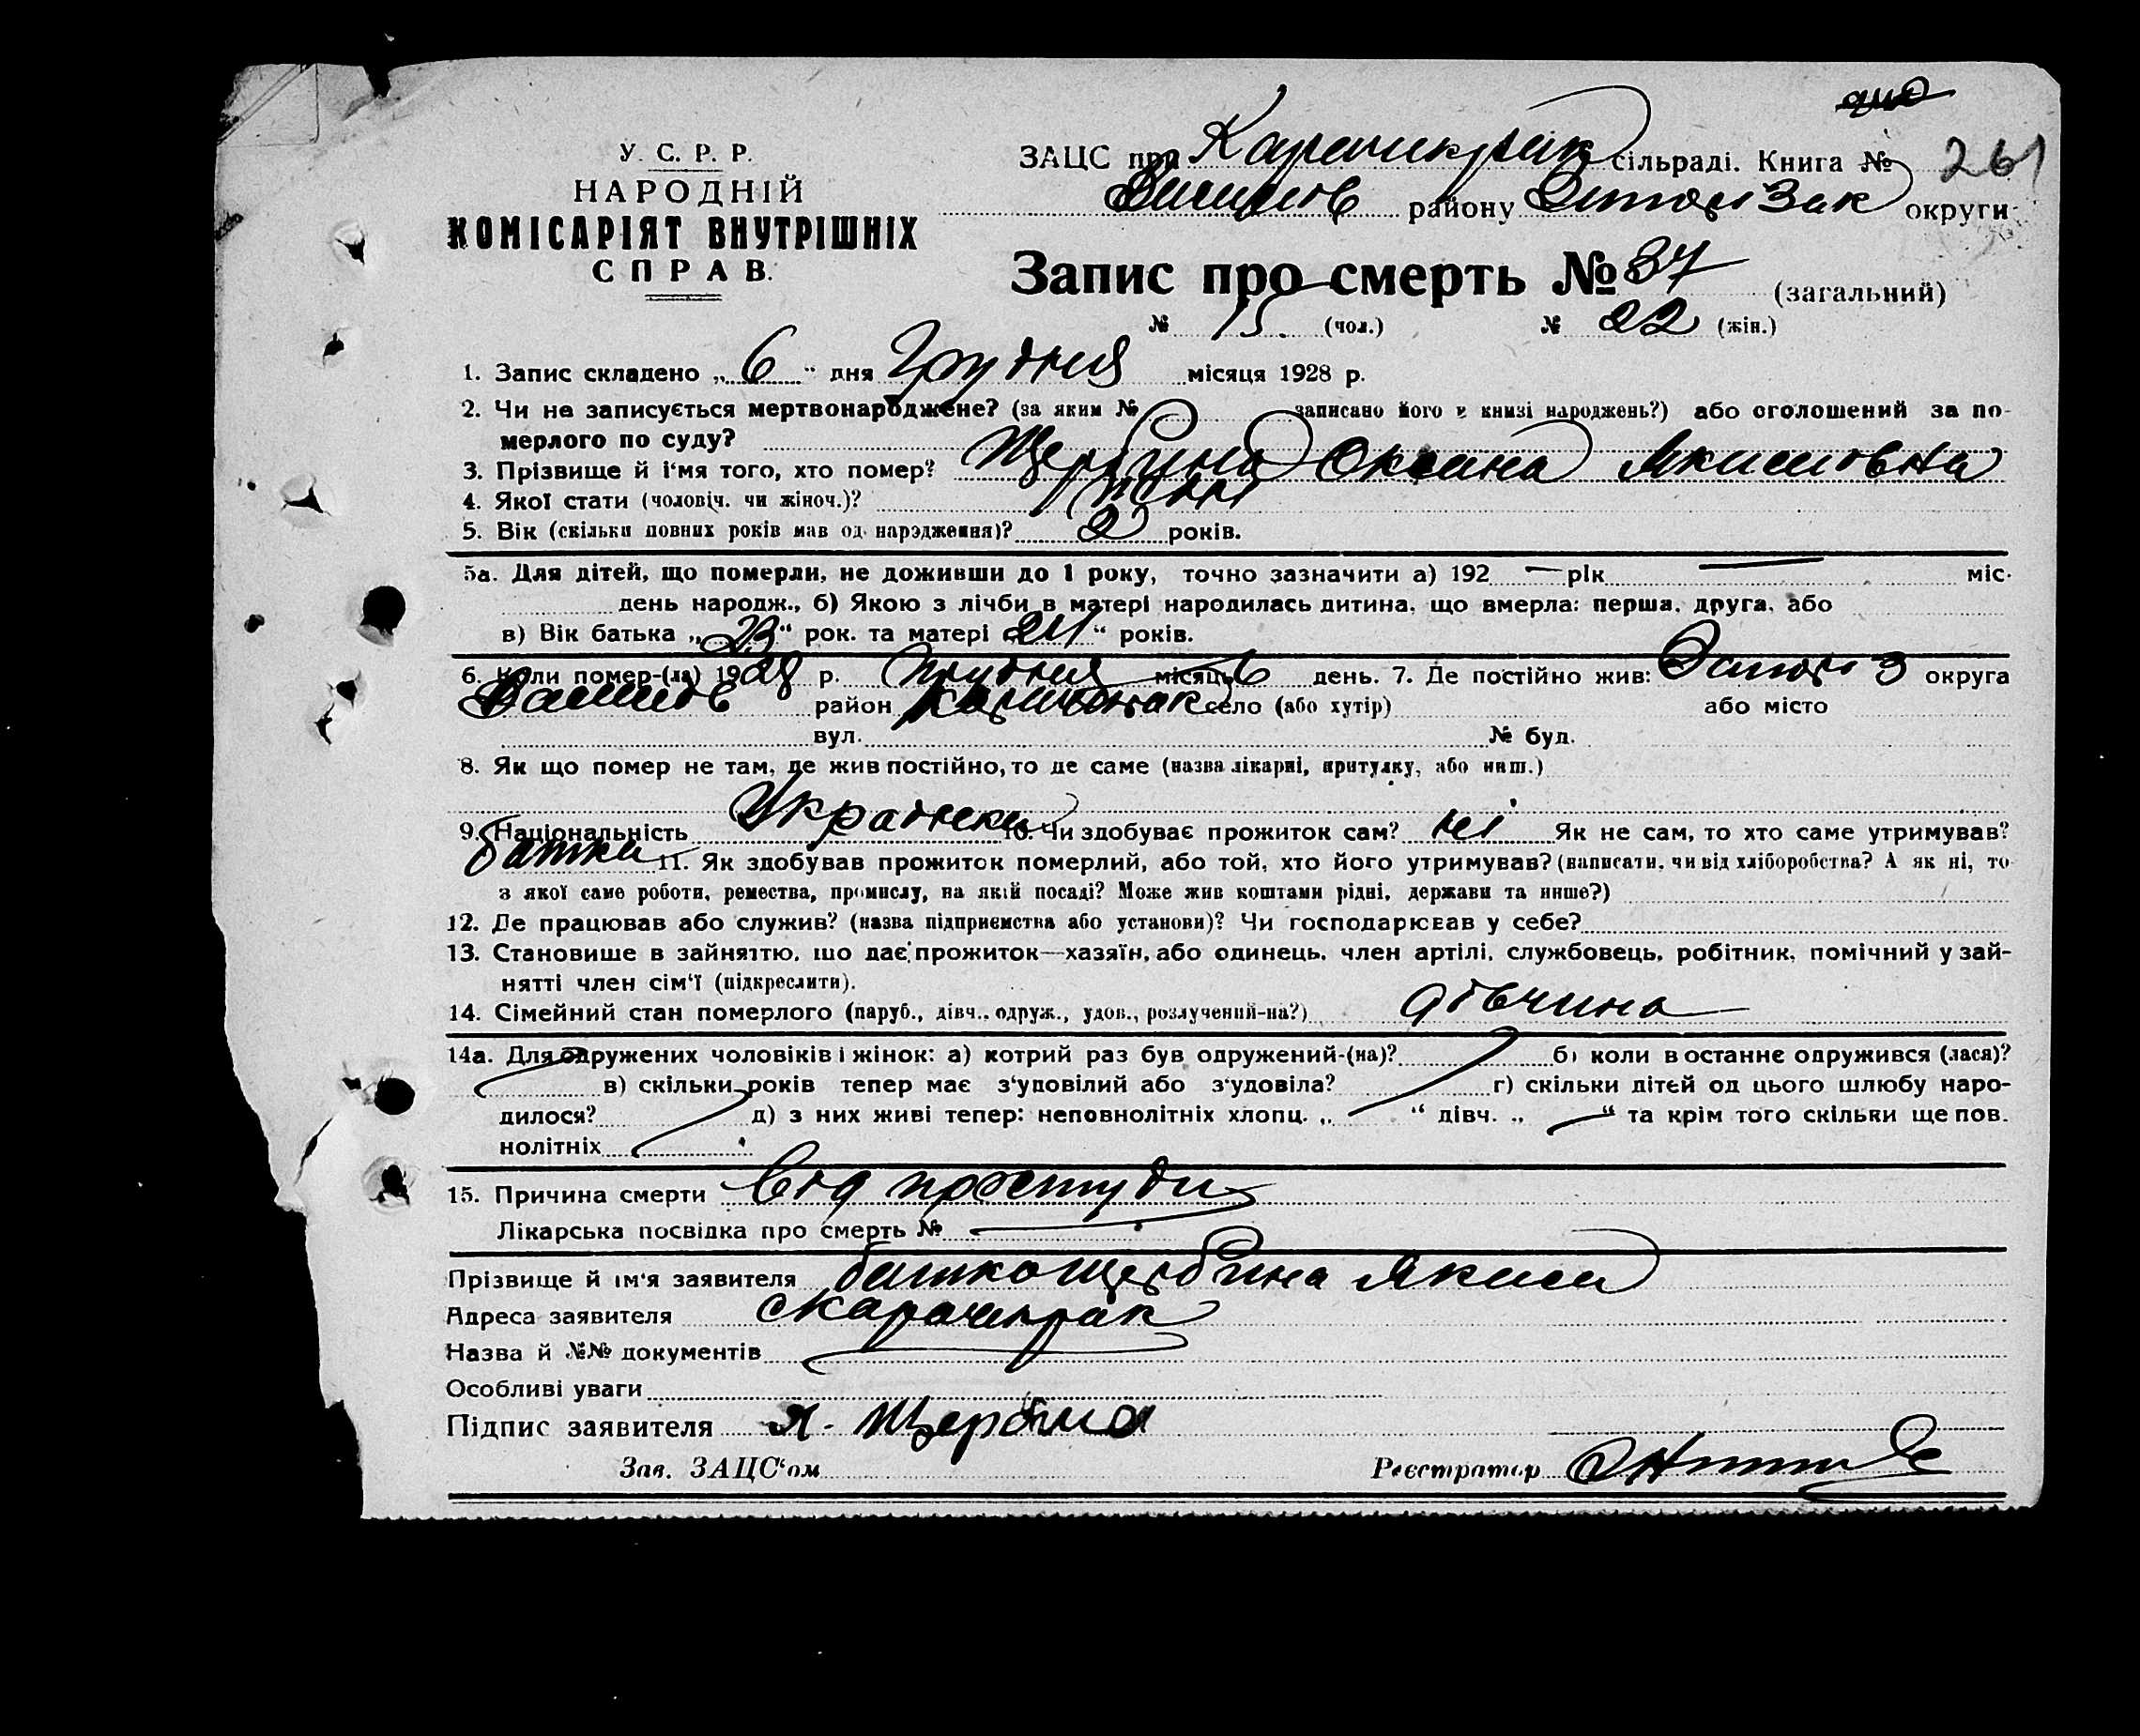 У. С. Р. Р.
НАРОДНІЙ
КОМІСАРІЯТ ВНУТРІШНІХ
СПРАВ.
ЗАЦС при Карачикрак сільраді. Книга № 261
району округи
Запис про смерть № 37 (загальний)
№ 15 (чол.) № 22 (жін.)
1. Запис складено „ 6 “ дня Грудня місяця 1928 р.
2. Чи не записується мертвонароджене? (за яким № записано його в книзі народжень?) або оголошений за по-
мерлого по суду?
3. Прізвище й і‘мя того, хто помер? Щербина Оксана Якимовна
4. Якої стати (чоловіч. чи жіноч.)?
5. Вік (скільки повних років мав од народження)? 2 років.
5а. Для дітей, що померли, не доживши до 1 року, точно зазначити а) 192 — рік — міс.
день народж., б) Якою з лічби в матері народилась дитина, що вмерла: перша, друга, або
в) Вік батька „ 23 “ рок. та матері „ 24 “ років.
6. Коли помер-(ла) 1928 р. Грудня місяць 6 день. 7. Де постійно жив: округа
район село (або хутір) або місто
вул. № буд.
8. Як що помер не там, де жив постійно, то де саме (назва лікарні, притулку, або инш.)
9. Національність Українка 10. Чи здобуває прожиток сам? ні Як не сам, то хто саме утримував?
батьки 11. Як здобував прожиток померлий, або той, хто його утримував? (написати, чи від хліборобства? А як ні, то
з якої саме роботи, ремества, промислу, на якій посаді? Може жив коштами рідні, держави та инше?)
12. Де працював або служив? (назва підприємства або установи)? Чи господарював у себе?
13. Становище в зайняттю, що дає прожиток—хазяїн, або одинець, член артілі, службовець, робітник, помічний у зай-
нятті член сім‘ї (підкреслити).
14. Сімейний стан померлого (паруб., дівч., одруж., удов., розлучений-на?) дівчина
14а. Для одружених чоловіків і жінок: а) котрий раз був одружений-(на)? б) коли в останнє одружився (лася)?
в) скільки років тепер має з‘уповілий або з‘удовіла? г) скільки дітей од цього шлюбу наро-
дилося? д) з них живі тепер: неповнолітніх хлопц. „ — “ дівч. „ — “ та крім того скільки ще пов.
нолітніх
15. Причина смерти від простуди
Лікарська посвідка про смерть № —
Прізвище й ім‘я заявителя батько Щербина Яким
Адреса заявителя с Карачикрак
Назва й №№ документів
Особливі уваги
Підпис заявителя Я. Щербина
Зав. ЗАЦС‘ом Реєстратор